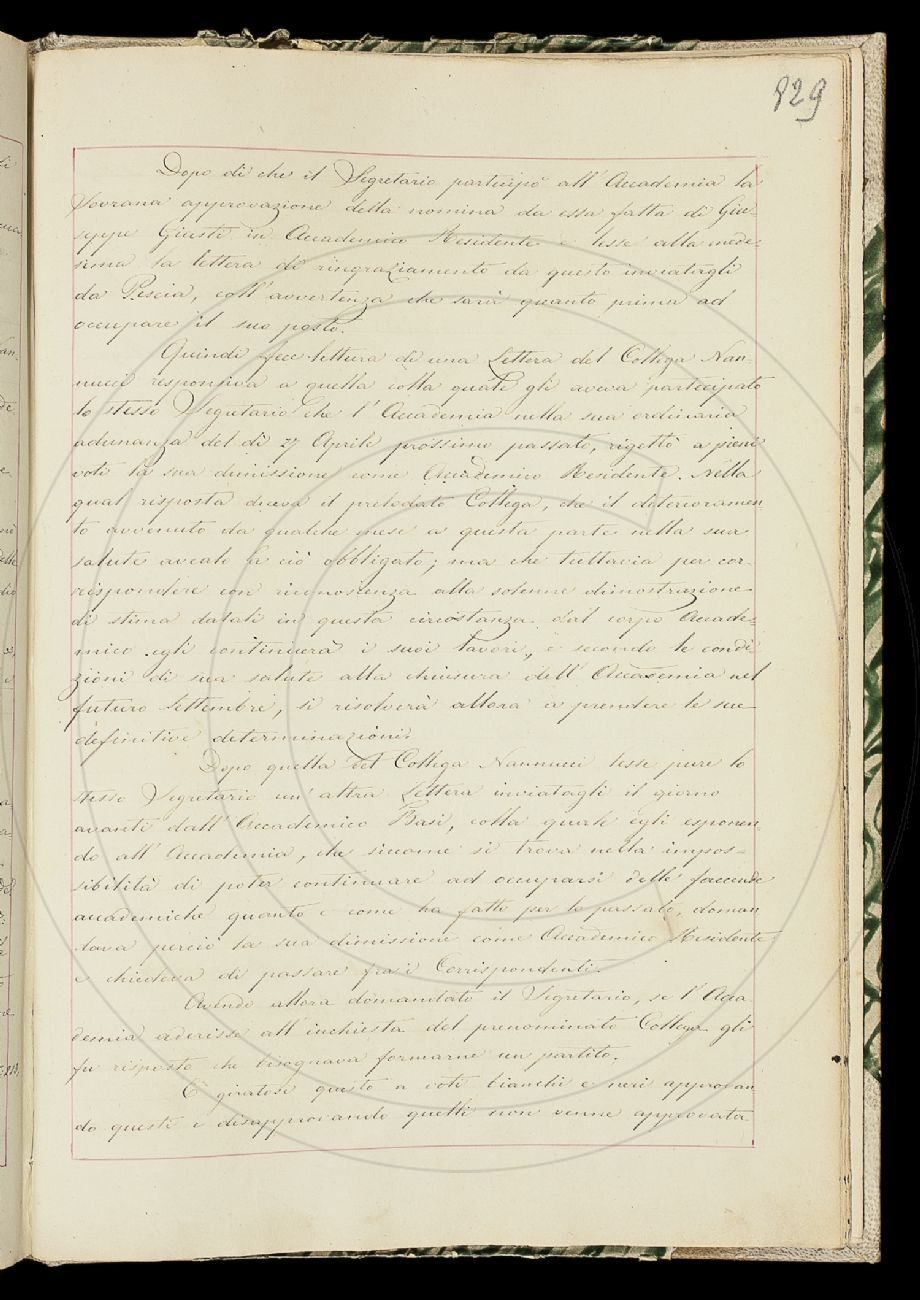 829
Dopo di che il Segretario partecipò all' Accademia la
Sovrana approvazione della nomina da essa fatta di Giu-
seppe Giusti in Accademico Residente e lesse alla mede-
sima la lettera di ringraziamento da questo inviatagli
da Pescia, coll' avvertenza che sarà quanto prima ad
occupare il suo posto.
Quindi fece lettura di una Lettera del Collega Nan-
nucci responsiva a quella colla quale gli aveva partecipato
lo stesso Segretario che l' Accademia nella sua ordinaria
adunanza del dì 27 Aprile prossimo passato, rigettò a pieni
voti la sua dimissione come Accademico Residente. Nella
qual risposta diceva il prelodato Collega, che il deterioramen
to avvenuto da qualche mese a questa parte nella sua
salute avealo a ciò obbligato; ma che tuttavia per cor-
rispondere con riconoscenza alla solenne dimostrazione
di stima datali in questa circostanza dal corpo Accade-
mico egli continuerà i suoi lavori, e secondo le condi
zioni di sua salute alla chiusura dell' Accademia nel
futuro Settembre, si risolverà allora a prendere le sue
definitive determinazioni.
Dopo quella del Collega Nannucci lesse pure lo
stesso Segretario un' altra Lettera inviatagli il giorno
avanti dall' Accademico Basi, colla quale egli esponen-
do all' Accademia, che siccome si trova nella impos-
sibilità di poter continuare ad occuparsi delle faccende
accademiche quanto e come ha fatto per lo passato, doman
dava perciò la sua dimissione come Accademico Residente
e chiedeva di passare fra i Corrispondenti.
Avendo allora domandato il Segretario, se l' Acca
demia aderisse all' inchiesta del prenominato Collega gli
fu risposto che bisognava formarne un partito.
E giratosi questo a voti bianchi e neri approvan
do questi e disapprovando quelli non venne approvata